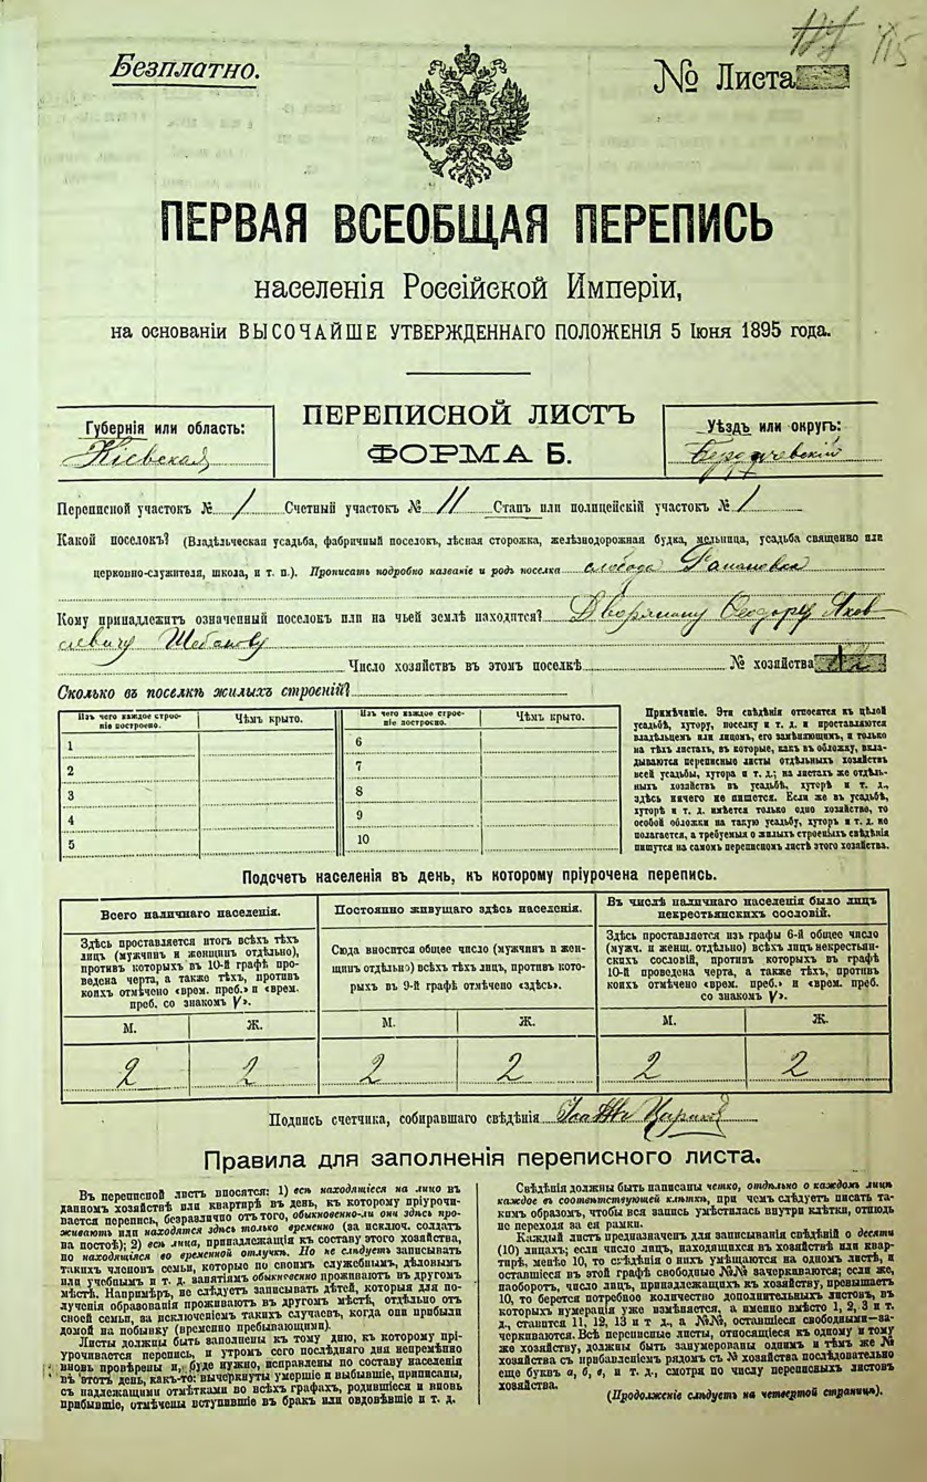 Безплатно.
№ Листа
115
ПЕРВАЯ ВСЕОБЩАЯ ПЕРЕПИСЬ
населенія Россійской Имперіи,
на основаніи ВЫСОЧАЙШЕ УТВЕРЖДЕННАГО ПОЛОЖЕНІЯ 5 Іюня 1895 года.
Губернія или область:
Кіевская
ПЕРЕПИСНОЙ ЛИСТЪ
ФОРМА Б.
Уѣздъ или округъ:
Бердичевскій
Переписной участокъ № 1 Счетный участокъ № 11 Станъ или полицейскій участокъ № 1
Какой поселокъ? (Владѣльческая усадьба, фабричный поселокъ, лѣсная сторожка, желѣзнодорожная будка, мельница, усадьба священно или
церковно-служителя, школа, и т. п.). Прописать подробно названіе и родъ поселка слобода
Кому принадлежитъ означенный поселокъ или на чьей землѣ находится? Дворянину Ѳеодору Яков
левичу
Число хозяйствъ въ этомъ поселкѣ № хозяйства
Сколько въ поселкѣ жилыхъ строеній?
Изъ чего каждое строе-
ніе построено.
Чѣмъ крыто.
Изъ чего каждое строе-
ніе построено.
Чѣмъ крыто.
1
2
3
4
5
6
7
8
9
10
Примѣчаніе. Эти свѣдѣнія относятся къ цѣлой
усадьбѣ, хутору, поселку и т. д. и проставляются
владѣльцемъ или лицомъ, его замѣняющимъ, и только
на тѣхъ листахъ, въ которые, какъ въ обложку, вкла-
дываются переписные листы отдѣльныхъ хозяйствъ
всей усадьбы, хутора и т. д.; на листахъ же отдѣль-
ныхъ хозяйствъ въ усадьбѣ, хуторѣ и т. д.,
здѣсь ничего не пишется. Если же въ усадьбѣ,
хуторѣ и т. д. имѣется только одно хозяйство, то
особой обложки на такую усадьбу, хуторъ и т. д. не
полагается, а требуемыя о жилыхъ строеніяхъ свѣдѣнія
пишутся на самомъ переписномъ листѣ этого хозяйства.
Подсчетъ населенія въ день, къ которому пріурочена перепись.
Всего наличнаго населенія.
Здѣсь проставляется итогъ всѣхъ тѣхъ
лицъ (мужчинъ и женщинъ отдѣльно),
противъ которыхъ въ 10-й графѣ про-
ведена черта, а также тѣхъ, противъ
коихъ отмѣчено «врем. преб.» и «врем.
преб. со знакомъ V».
Постоянно живущаго здѣсь населенія.
Сюда вносится общее число (мужчинъ и жен-
щинъ отдѣльно) всѣхъ тѣхъ лицъ, противъ кото-
рыхъ въ 9-й графѣ отмѣчено «здѣсь».
Въ числѣ наличнаго населенія было лицъ
некрестьянскихъ сословій.
Здѣсь проставляется изъ графы 6-й общее число
(мужч. и женщ. отдѣльно) всѣхъ лицъ некрестьян-
скихъ сословій, противъ которыхъ въ графѣ
10-й проведена черта, а также тѣхъ, противъ
коихъ отмѣчено «врем. преб.» и «врем. преб.
со знакомъ V».
М. Ж. М. Ж. М. Ж.
2 2 2 2 2 2
Подпись счетчика, собиравшаго свѣдѣнія
Правила для заполненія переписного листа.
Въ переписной листъ вносятся: 1) всѣ находящіеся на лицо въ
данномъ хозяйствѣ или квартирѣ въ день, къ которому пріурочи-
вается перепись, безразлично отъ того, обыкновенно-ли они здѣсь про-
живаютъ или находятся здѣсь только временно (за исключ. солдатъ
на постоѣ); 2) всѣ лица, принадлежащія къ составу этого хозяйства,
но находящіяся во временной отлучкѣ. Но не слѣдуетъ записывать
такихъ членовъ семьи, которые по своимъ служебнымъ, дѣловымъ
или учебнымъ и т. д. занятіямъ обыкновенно проживаютъ въ другомъ
мѣстѣ. Напримѣръ, не слѣдуетъ записывать дѣтей, которыя для по-
лученія образованія проживаютъ въ другомъ мѣстѣ, отдѣльно отъ
своей семьи, за исключеніемъ такихъ случаевъ, когда они прибыли
домой на побывку (временно пребывающими).
Листы должны быть заполнены къ тому дню, къ которому прі-
урочивается перепись, и утромъ сего послѣдняго дня непремѣнно
вновь провѣрены и, буде нужно, исправлены по составу населенія
въ этотъ день, какъ-то: вычеркнуты умершіе и выбывшіе, приписаны,
съ надлежащими отмѣтками во всѣхъ графахъ, родившіеся и вновь
прибывшіе, отмѣчены вступившіе въ бракъ или овдовѣвшіе и т. д.
Свѣдѣнія должны быть написаны четко, отдѣльно о каждомъ лицѣ
каждое въ соотвѣтствующей клѣткѣ, при чемъ слѣдуетъ писать та-
кимъ образомъ, чтобы вся запись умѣстилась внутри клѣтки, отнюдь
не переходя за ея рамки.
Каждый листъ предназначенъ для записыванія свѣдѣній о десяти
(10) лицахъ; если число лицъ, находящихся въ хозяйствѣ или квар-
тирѣ, менѣе 10, то свѣдѣнія о нихъ умѣщаются на одномъ листѣ, и
оставшіеся въ этой графѣ свободные №№ зачеркиваются; если же,
наоборотъ, число лицъ, принадлежащихъ къ хозяйству, превышаетъ
10, то берется потребное количество дополнительныхъ листовъ, въ
которыхъ нумерація уже измѣняется, а именно вмѣсто 1, 2, 3 и т.
д., ставится 11, 12, 13 и т д., а №№, оставшіеся свободными—за-
черкиваются. Всѣ переписные листы, относящіеся къ одному и тому
же хозяйству, должны быть занумерованы однимъ и тѣмъ же №
хозяйства съ прибавленіемъ рядомъ съ № хозяйства послѣдовательно
еще буквъ а, б, в, и т. д., смотря по числу переписныхъ листовъ
хозяйства.
(Продолженіе слѣдуетъ на четвертой страницѣ).